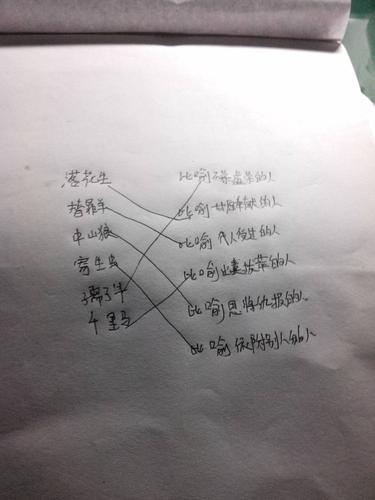 落花生 比喻不慕虚荣的人
替罪羊 比喻奉献的人
中山狼 比喻代人受过的人
寄生虫 比喻出类拔萃的人
孺子牛 比喻恩将仇报的人
千里马 比喻依附别人的人